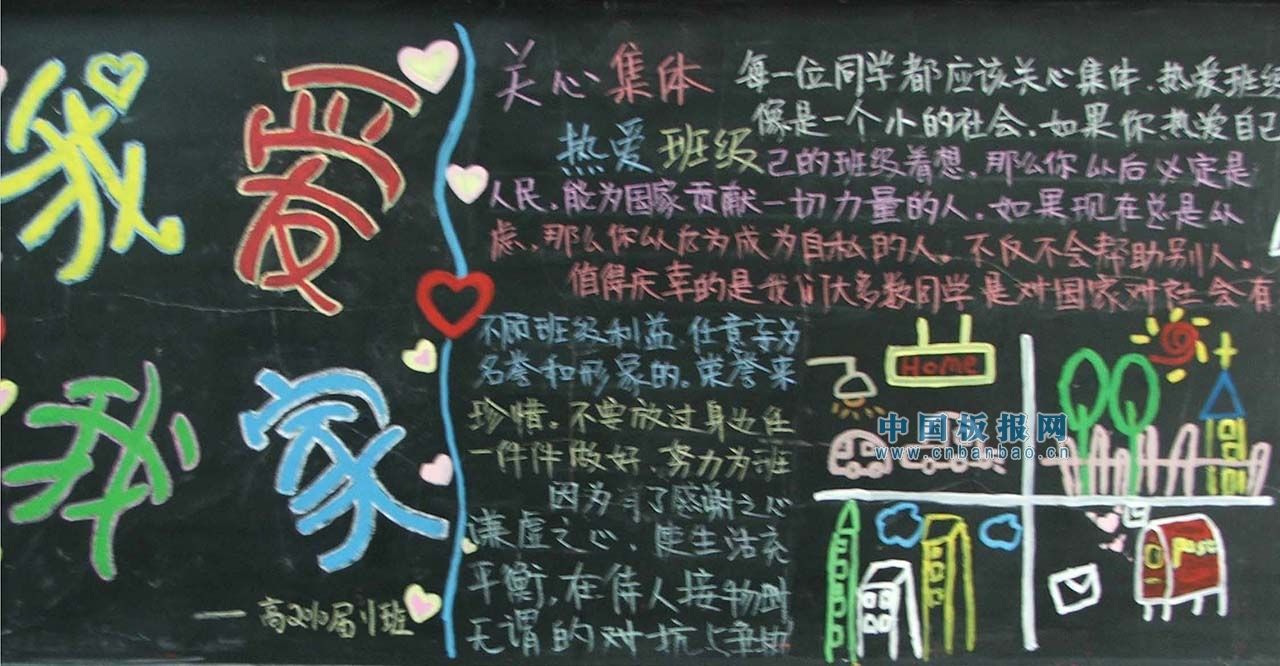 我爱
我家
关心集体
热爱班级
每一位同学都应该关心集体.热爱班级
像是一个小的社会.如果你热爱自己
己的班级着想.那么你从后必定是
人民.能为国家贡献一切力量的人.如果现在总是从
虑.那么你从后为成为自私的人.不仅不会帮助别人.
值得庆幸的是我们大多数同学是对国家对社会有
不顾班级利益.任意妄为
名誉和形象的.荣誉来
珍惜.不要放过身边任
一件件做好.努力为班
因为有了感谢之心
谦虚之心.使生活充
平衡.在待人接物时
无谓的对抗与争执
Home
中国板报网
www.cnbanbao.cn
Post